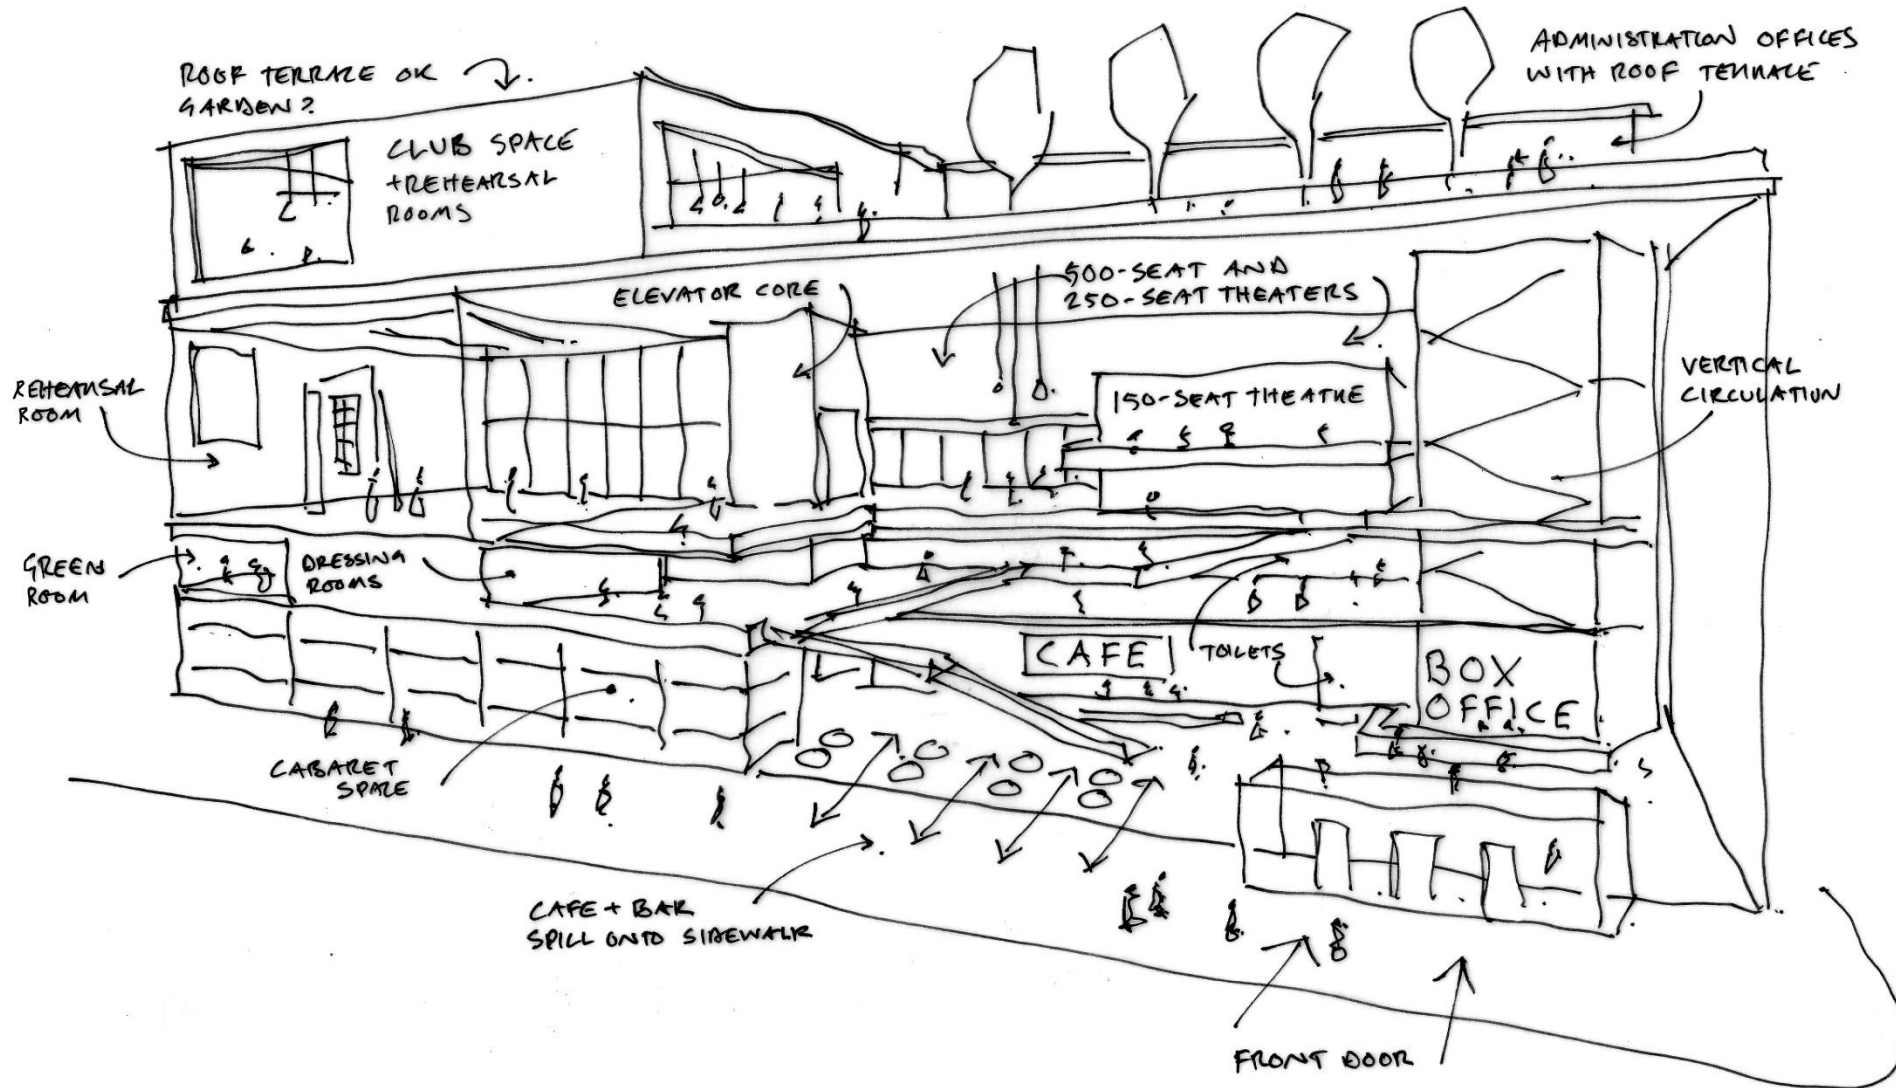 ROOF TERRACE OR
GARDEN?
ADMINISTRATION OFFICES
WITH ROOF TERRACE
CLUB SPACE
+REHEARSAL
ROOMS
ELEVATOR CORE
500-SEAT AND
250-SEAT THEATERS
REHEARSAL
ROOM
150-SEAT THEATRE
VERTICAL
CIRCULATION
GREEN
ROOM
DRESSING
ROOMS
CAFE
TOILETS
BOX
OFFICE
CABARET
SPACE
CAFE + BAR
SPILL ONTO SIDEWALK
FRONT DOOR